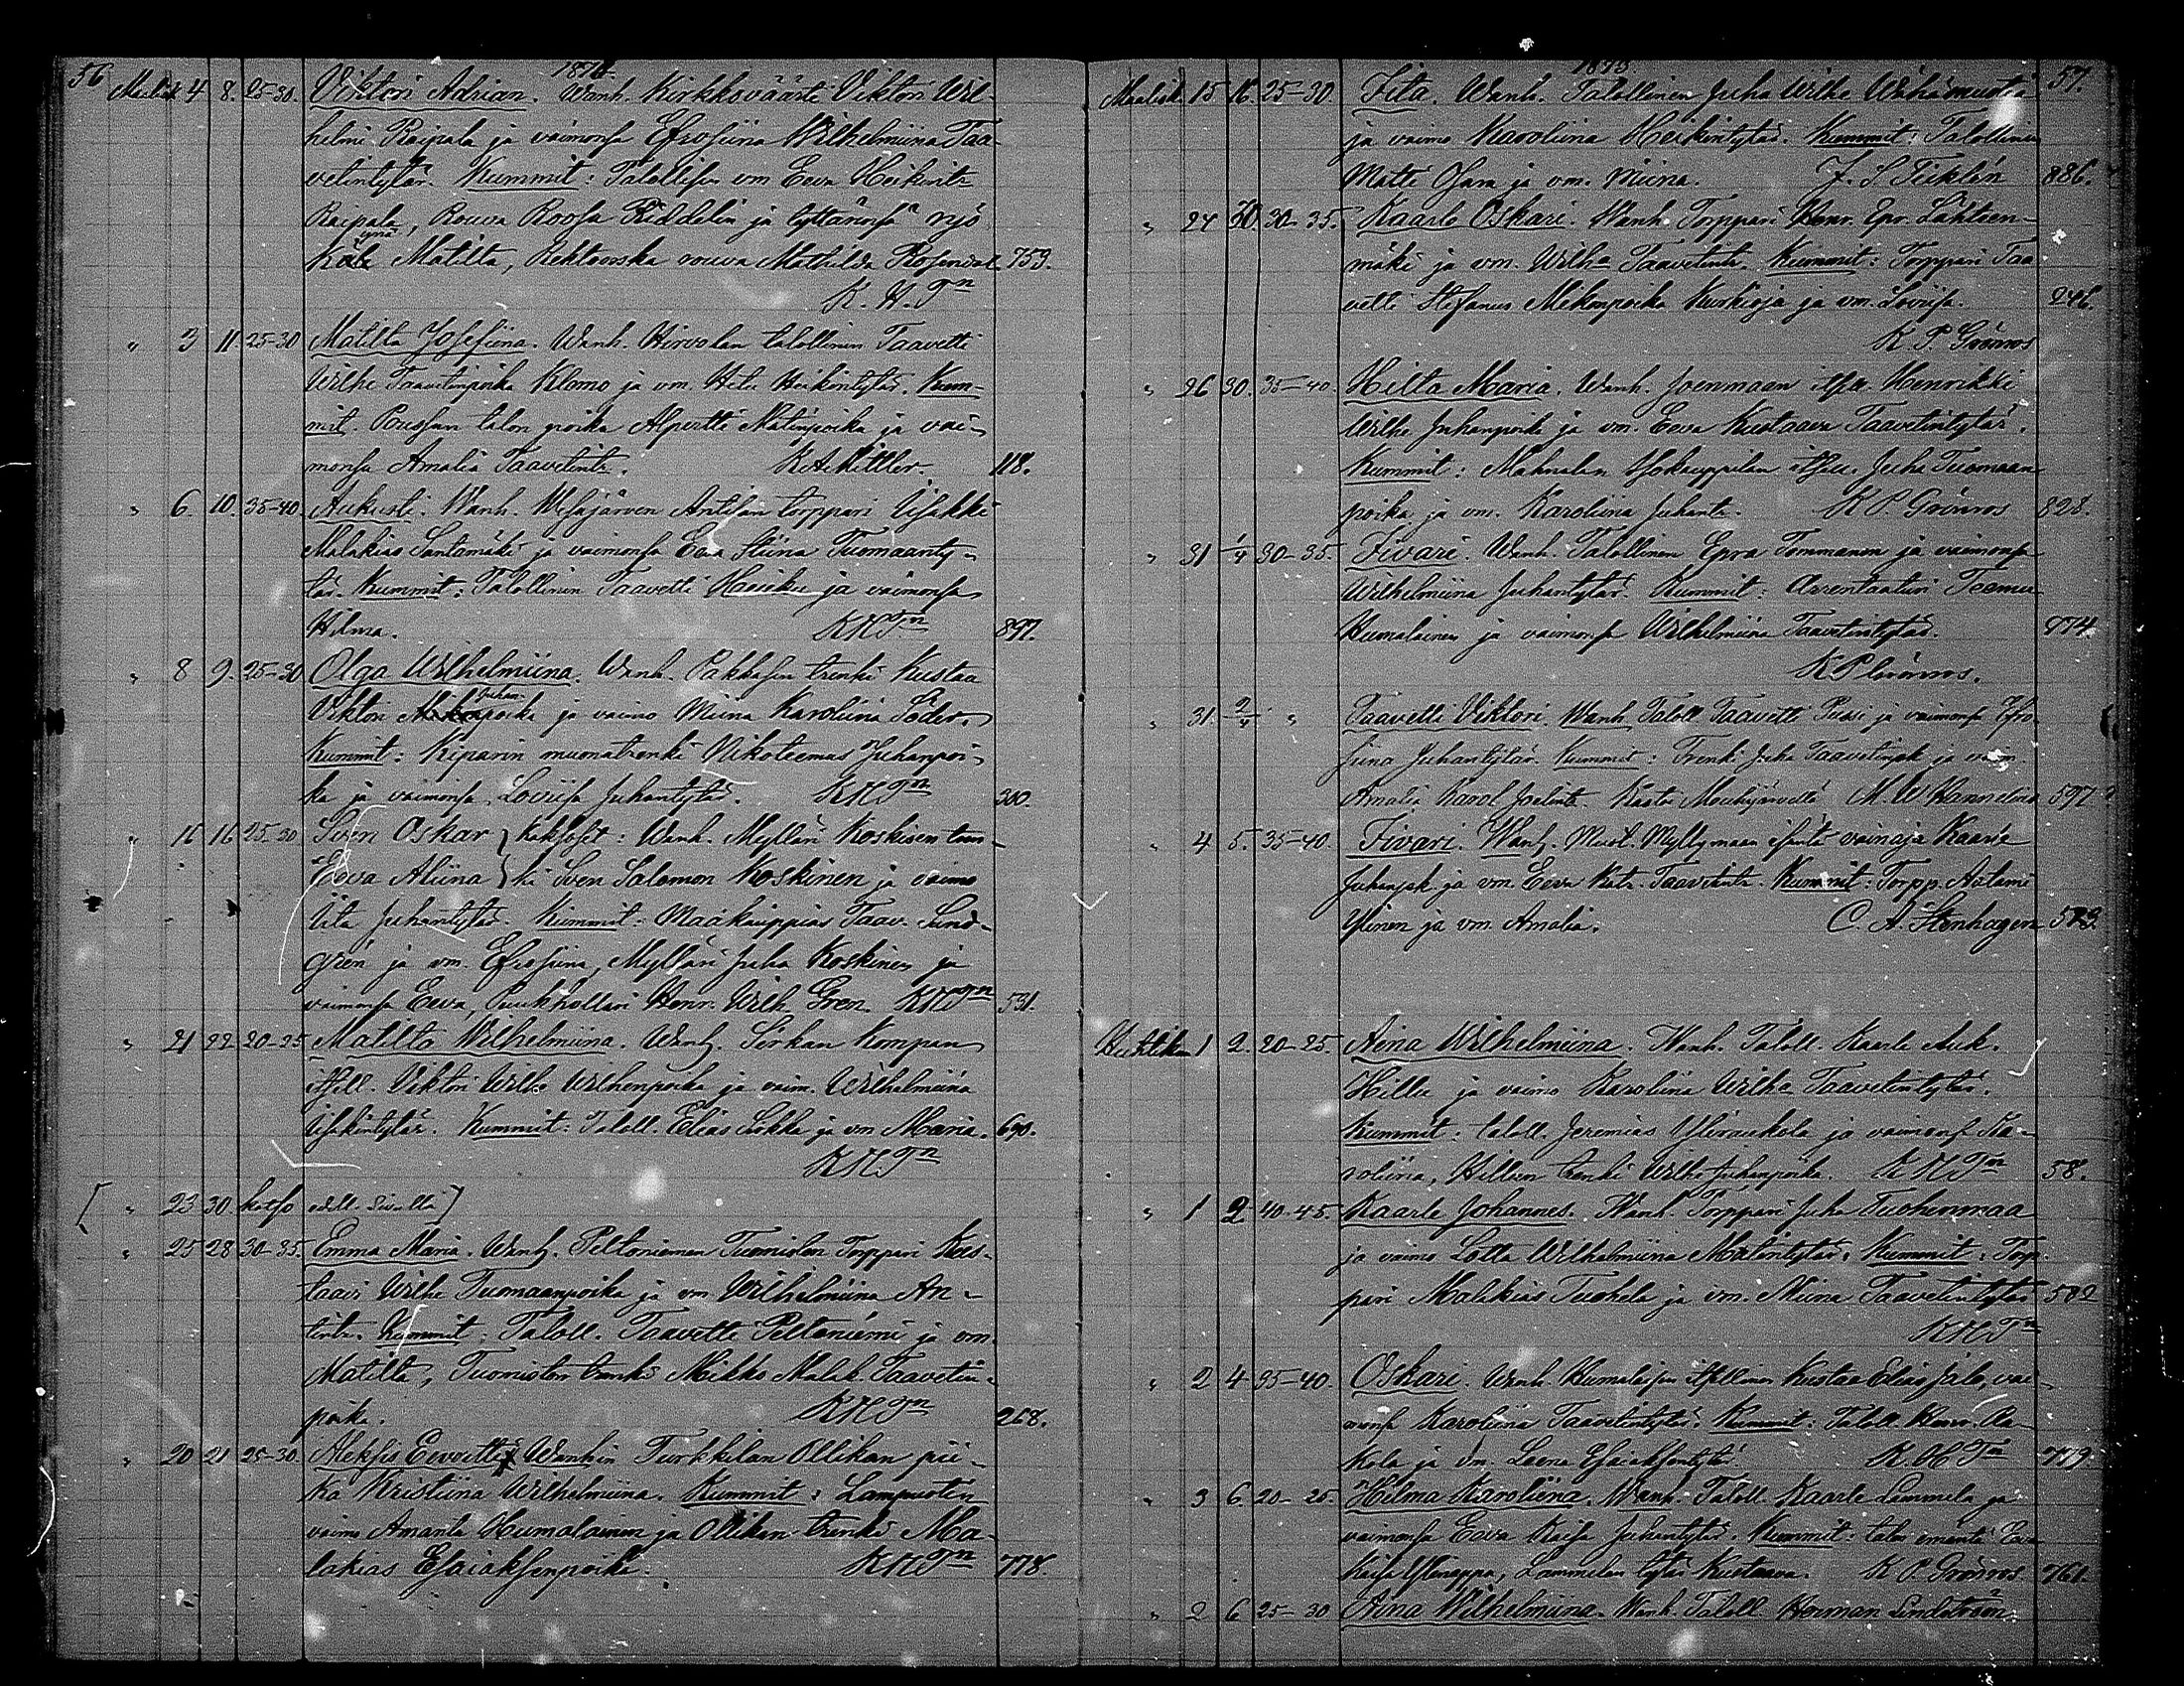 56 1874.
4 8. 25-30. Viktori Adrian. Wanh. Kirkkoväärti Viktori Wil-
helmi Raipala ja vaimonsa Efrosiina Wilhelmiina Taa-
vetintytär. Kummit: Talollisen vm Eeva Heikint:
Raipala, Rouva Roosa Riddelin ja
Matilta, Rehtorska rouva Mathilda Rosendal 753.
K. H. Tn
" 3 11 25-30 Matilta Josefiina. Wanh. Hirvolan talollinen Taavetti
Wilhe Taavetinpoika Klomo ja vm. Heikintytär. Kum-
mit. talon poika Alpertti Matinpoika ja vai-
monsa Amalia Taavetint. 118.
" 6. 10. 35-40. Aukusti. Wanh. Wesajärven Anttilan torppari Iisakki
Malakias Santamäki ja vaimonsa Eeva Stiina Tuomaanty-
tär. Kummit: Talollinen Taavetti ja vaimonsa
Hilma. KHTn 897.
" 8 9. 25-30 Olga Wilhelmiina. Wanh. Pakkasen trenki Kustaa
Viktori Juhanpoika ja vaimo Miina Karoliina Söder.
Kummit: Kiparin muonatrenki Nikoteemus Juhanpoi-
ka ja vaimonsa Loviisa Juhantytär. KHTn 300.
" 16 16 25-30 Sven Oskar } kaksoset: Wanh. Mylläri Koskisen
Eeva Aliina } Sven Salomon Koskinen ja vaimo
Iita Juhantytär. Kummit: Maakauppias Taav. Lind-
grén ja vm. Efrosiina, Mylläri Juha Koskinen ja
vaimonsa Eeva, Puukhollari Henr. Wilh Gren. KHTn 531.
" 21 22 20-25 Matilta Wilhelmiina. Wanh. Sirkan Kompan
itsell. Viktori Wilh: Wilhenpoika ja vaim. Wilhelmiina
Iisakintytär. Kummit: Taloll. Elias Sirkka ja vm Maria. 690.
KHTn
[ " 23 30. katso edell. sivulla ]
" 25 28 30-35. Emma Maria. Wanh. Peltoniemen Tuomiolan Torppari Kus-
taavi Wilhe Tuomaanpoika ja vm Wilhelmiina An-
tint. Kummit: Taloll. Taavetti Peltoniemi ja vm.
Matilta, Tuomiolan trenki Mikko Malak. Taavetin-
poika. KHTn 268.
" 20 21 25-30. Aleksis Eevertti Wanhin Turkkilan Ollikan pii-
ka Kristiina Wilhelmiina. Kummit: Lampuotin
vaimo Amanta Humalainen ja Ollikan trenki Ma-
lakias Esaiaksenpoika. KHTn 778.
1875. 57.
Maalisk. 15 16. 25-30 Fita. Wanh. Talollinen Juha Wilhe Wähämusta
ja vaimo Karoliina Heikintytär. Kummit: Talollinen
Matti Osara ja vm. Miina. J. S. Tiklén 886.
" 24 30. 30-35. Kaarle Oskari. Wanh. Torppari Henr. Epr. Lähteen-
mäki ja vm. Wilha Taavetint. Kummit: Torppari Taa
vetti Stefanus Mikonpoika Kurkioja ja vm. Loviisa. 246.
K. P. Grönros
" 26 30. 35-40. Hilta Maria. Wanh. Joenmaan itsll. Henrikki
Wilhe Juhanpoika ja vm. Eeva Kustaava Taavetintytär.
Kummit: Mahnalan itsell. Juha Tuomaan
poika ja vm. Karoliina Juhant. K P. Grönros 828.
" 31 1/4 30-35. Fivari. Wanh. Talollinen Epra Tommanen ja vaimonsa
Wilhelmiina Juhantytär. Kummit: Arentaatori Teemu
Humalainen ja vaimonsa Wilhelmiina Taavetintytär. 774
K P Grönros.
" 31. 2/4 " Taavetti Viktori. Wanh. Taloll Taavetti Pussi ja vaimonsa Efro-
siina Juhantytär. Kummit: Trenki Juha Taavetinpk ja vaim.
Amalia Karol Joelint. Kasti Mouhijärvellä M. W Hannelius 597
" 4 5. 35-40. Fivari. Wanh. Myllymaan isäntä vainaja Kaarle
Juhanpk ja vm. Eeva Kat. Taavetint. Kummit: Torpp. Aatami
Ylinen ja vm. Amalia. C. A. Stenhagen 573.
Huhtikuu 1 2. 20-25. Aina Wilhelmiina. Wanh. Taloll. Kaarle Auk.
Hillu ja vaimo Karoliina Wilha Taavetintytär.
Kummit: taloll. Jeremias Yliraukola ja vaimonsa Ka-
roliina, Hillun trenki Wilhe Juhanpoika. KHTn 58.
" 1 2. 40-45. Kaarle Johannes. Wanh. Torppari Juha Tuohenmaa
ja vaimo Lotta Wilhelmiina Matintytär. Kummit: Torp-
pari Malakias Tuohela ja vm. Miina Taavetintytär 502
KHTn
" 2 4 35-40. Oskari. Wanh Humalaisen itsellinen Kustaa Elias Jalo, vai-
monsa Karoliina Taavetintytär. Kummit: Taloll. Henr. Ra-
kola ja vm. Leena Esaiaksentytär. K. H Tn 779.
" 3 6 20-25. Hilma Karoliina. Wanh. Taloll. Kaarle Lammela ja
vaimonsa Eeva Kaisa Juhantytär. Kummit: talon emäntä Eeva
Kaisa, Lammelan tytär Kustaava. K P. Grönros 761.
" 2 6 25-30 Aina Wilhelmiina. Wanh. Taloll Herman Lindström